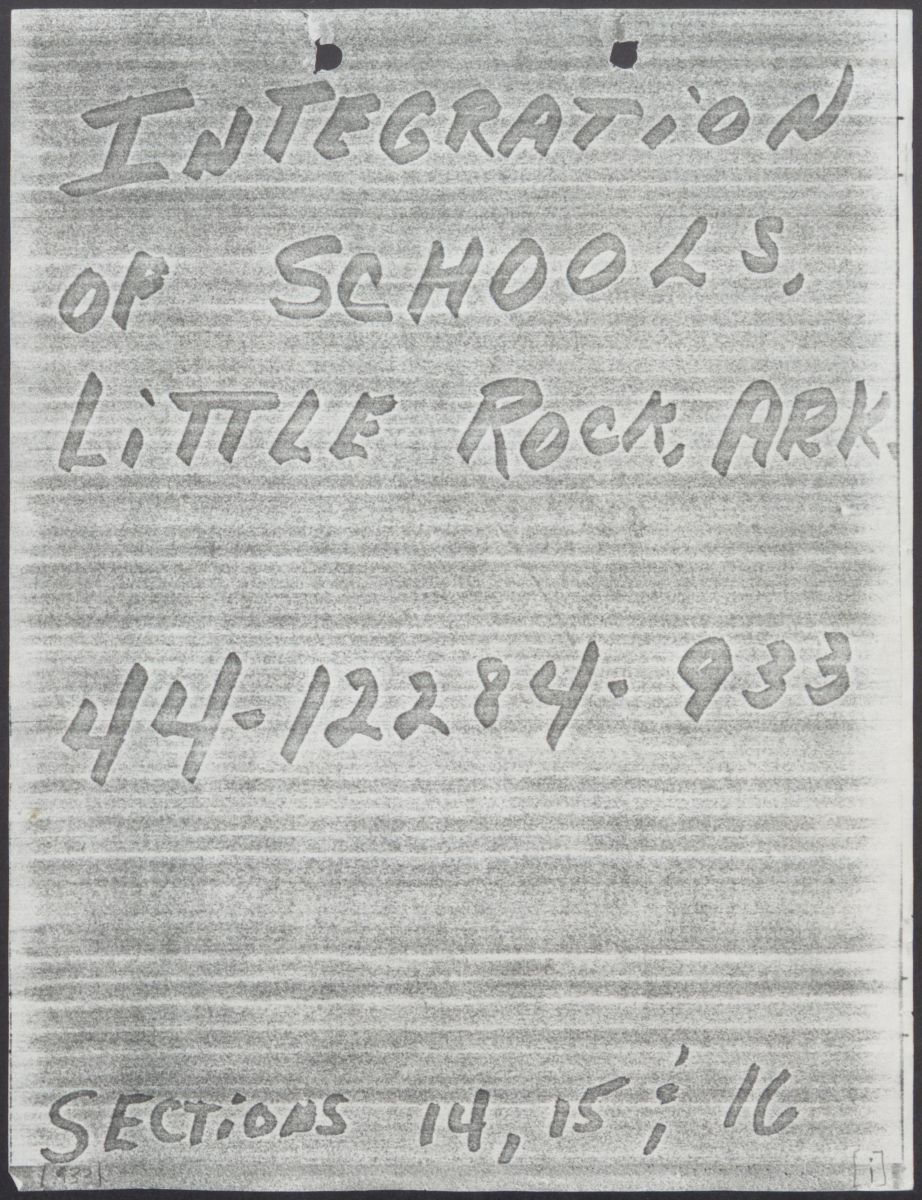 INTEGRATION
OF SCHOOLS,
LITTLE ROCK, ARK.
44-12284-933
SECTIONS 14, 15 & 16
[933] [i]